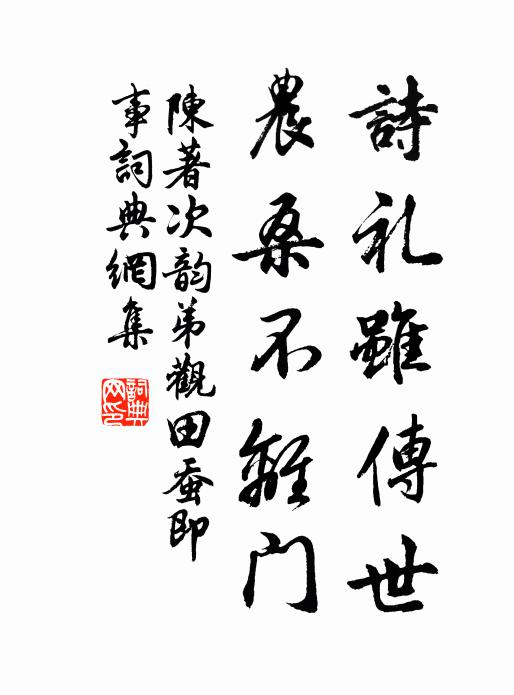 詩礼雖傳世
農桑不離门
陳著次韵弟觀田蚕即
事詞典網集
詞典网印